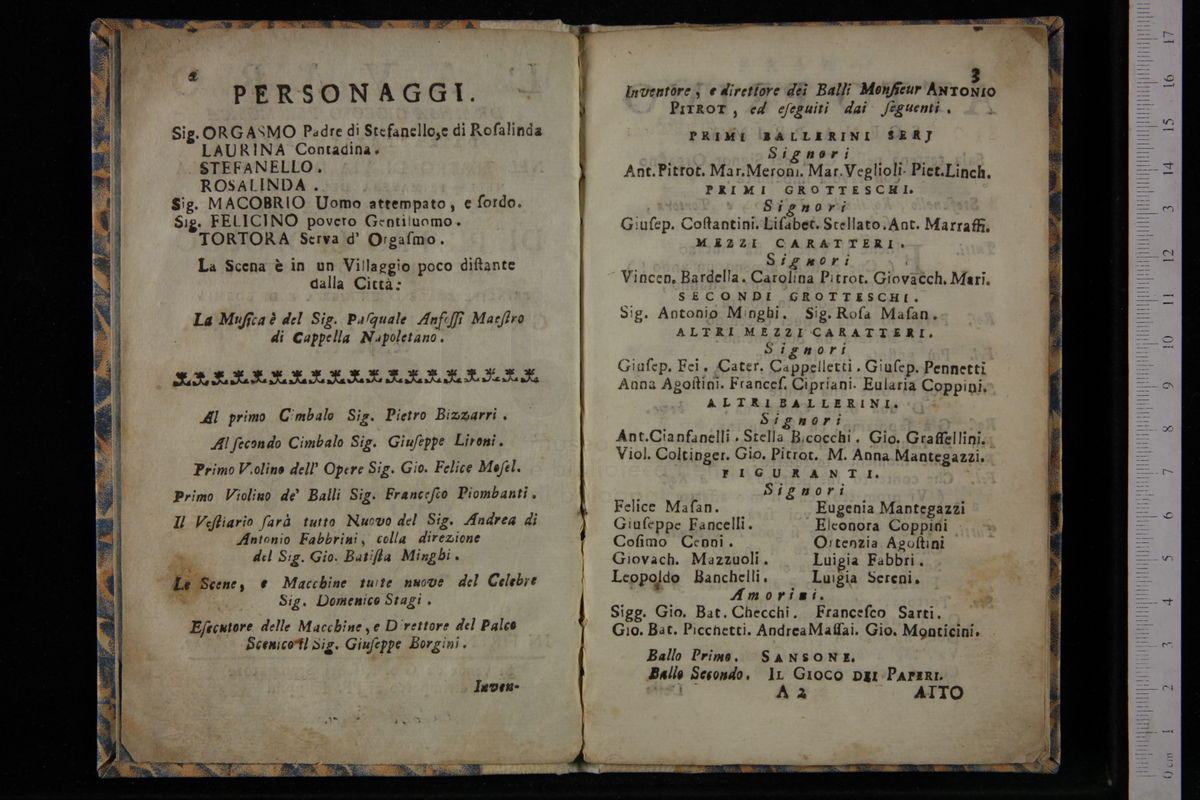 2
PERSONAGGI.
Sig. ORGASMO Padre di Stefanello, e di Roſalinda
LAURINA Contadina.
STEFANELLO.
ROSALINDA.
Sig. MACOBRIO Uomo attempato, e ſordo.
Sig. FELICINO povero Gentiluomo.
TORTORA Serva d' Orgaſmo.
La Scena è in un Villaggio poco diſtante
dalla Città:
La Muſica è del Sig. Paſquale Anfoſſi Maeſtro
di Cappella Napoletano.
Al primo Cimbalo Sig. Pietro Bizzarri.
Al ſecondo Cimbalo Sig. Giuſeppe Lironi.
Primo Violino dell' Opere Sig. Gio. Felice Moſel.
Primo Violino de' Balli Sig. Franceſco Piombanti.
Il Veſtiario ſarà tutto Nuovo del Sig. Andrea di
Antonio Fabbrini, colla direzione
del Sig. Gio. Batiſta Minghi.
Le Scene, e Macchine tutte nuove del Celebre
Sig. Domenico Stagi.
Eſecutore delle Macchine, e Direttore del Palco
Scenico il Sig. Giuſeppe Borgini.
Inven-
3
Inventore, e direttore dei Balli Monſieur ANTONIO
PITROT, ed eſeguiti dai ſeguenti.
PRIMI BALLERINI SERJ
Signori
Ant. Pitrot. Mar. Meroni. Mar. Veglioli. Piet. Linch.
PRIMI GROTTESCHI.
Signori
Giuſep. Coſtantini. Liſabet. Stellato. Ant. Marraffi.
MEZZI CARATTERI.
Signori
Vincen. Bardella. Carolina Pitrot. Giovacch. Mari.
SECONDI GROTTESCHI.
Sig. Antonio Minghi. Sig. Roſa Maſan.
ALTRI MEZZI CARATTERI.
Signori
Giuſep. Fei. Cater. Cappelletti. Giuſep. Pennetti
Anna Agoſtini. Franceſ. Cipriani. Eularia Coppini.
ALTRI BALLERINI.
Signori
Ant. Cianfanelli. Stella Bicocchi. Gio. Graffellini.
Viol. Coltinger. Gio. Pitrot. M. Anna Mantegazzi.
FIGURANTI.
Signori
Felice Maſan. Eugenia Mantegazzi
Giuſeppe Fancelli. Eleonora Coppini
Coſimo Cenni. Ortenzia Agoſtini
Giovach. Mazzuoli. Luigia Fabbri.
Leopoldo Banchelli. Luigia Sereni.
Amorini.
Sigg. Gio. Bat. Checchi. Franceſco Sarti.
Gio. Bat. Picchetti. Andrea Maſſai. Gio. Monticini.
Ballo Primo. SANSONE.
Ballo Secondo. IL GIOCO DEI PAPERI.
A 2 ATTO
0 cm 1 2 3 4 5 6 7 8 9 10 11 12 13 14 15 16 17